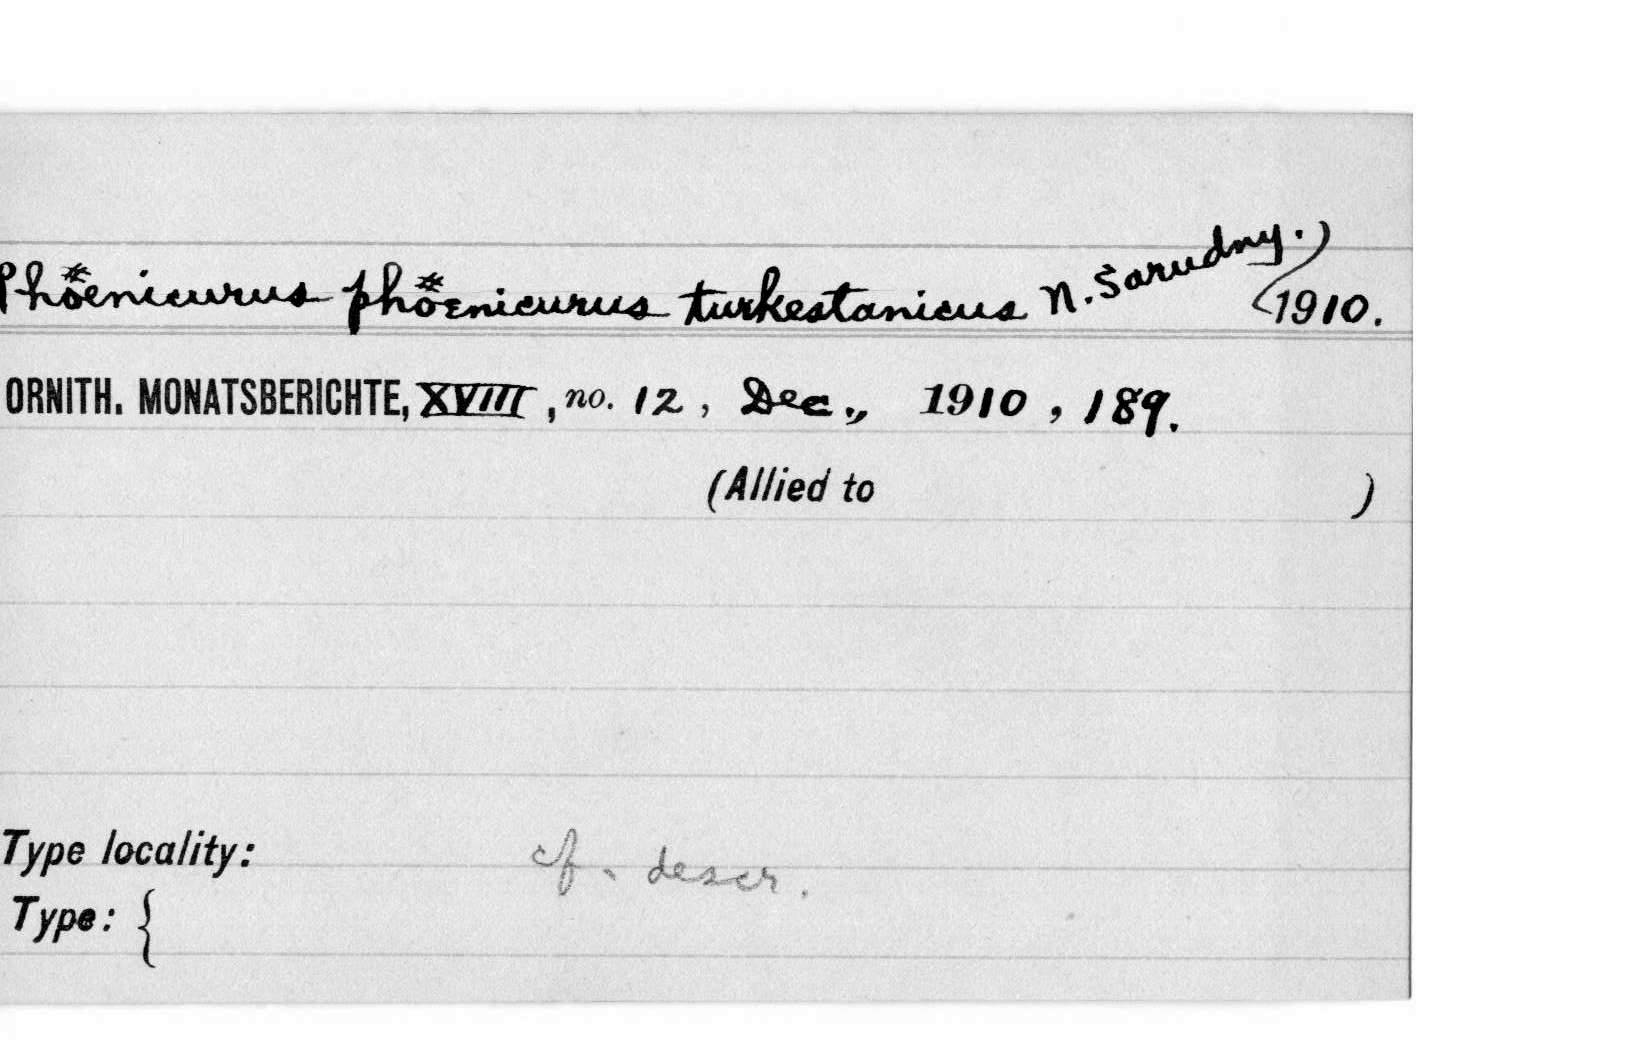 Phöenicurus phöenicurus turkestanicus N. Sarudny.) (1910.
ORNITH. MONATSBERICHTE, XVIII, no. 12, Dec., 1910, 189.
(Allied to )
Type locality: cf. descr.
Type: {